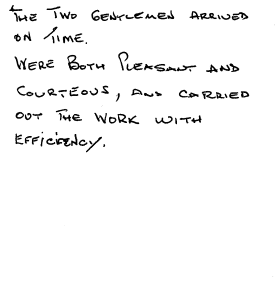 THE TWO GENTLEMEN ARRIVED
ON TIME.
WERE BOTH PLEASANT AND
COURTEOUS, AND CARRIED
OUT THE WORK WITH
EFFICIENCY.